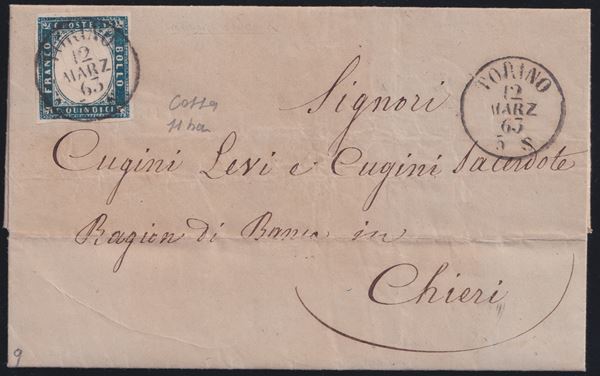 FRANCO POSTE BOLLO
C. QUINDICI
TORINO
12
MARZ
63
TORINO
12
MARZ
63
5 S
Signori
Cugini Levi e Cugini Sacerdote
Ragion di Banco in
Chieri
9